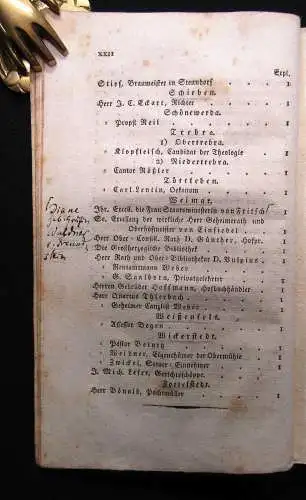 XXII
Expl.
Stirf, Braumeister in Sterndorf . . . 1
Schieben.
Herr J. C. Eckart, Richter . . . 1
Schönewerda.
» Propst Keil . . . 1
Trebra.
1) Obertrebra.
» Klopfleisch, Candidat der Theologie . . 1
2) Niedertrebra.
» Cantor Rößler . . . 1
Türtleben.
» Carl Lentin, Oekonom . . . 1
Weimar.
Ihr. Excell. die Frau Staatsministerin von Fritsch 1
Se. Excellenz der wirkliche Herr Geheimerath und
Oberhofmeister von Einsiedel . . 1
Herr Ober-Consist. Rath D. Günther, Hofpr. 1
Die Großherzogliche Bibliothek . . 1
Herr Rath und Ober-Bibliothekar D. Vulpius . 1
» Rentamtmann Weber . . 1
» G. Sahlborn, Privatgelehrter . . 1
Herren Gebrüder Hoffmann, Hofbuchhändler . 1
Herr Emeritus Thierbach . . 1
» Geheimer Canzlist Weber . . 1
Weißenfels.
» Assessor Beyer . . 1
Wickerstedt.
» Pastor Beiner . . 1
» Meißner, Eigenthümer der Obermühle . 1
» Zwickel, Steuer-Einnehmer . . 1
J. Mich. Leser, Gerichtsschöppe . . 1
Zottelstedt.
Herr Bönnis, Papiermüller . . 1
Diane
geb. Gräfin
Waldner
v. Freund
stein